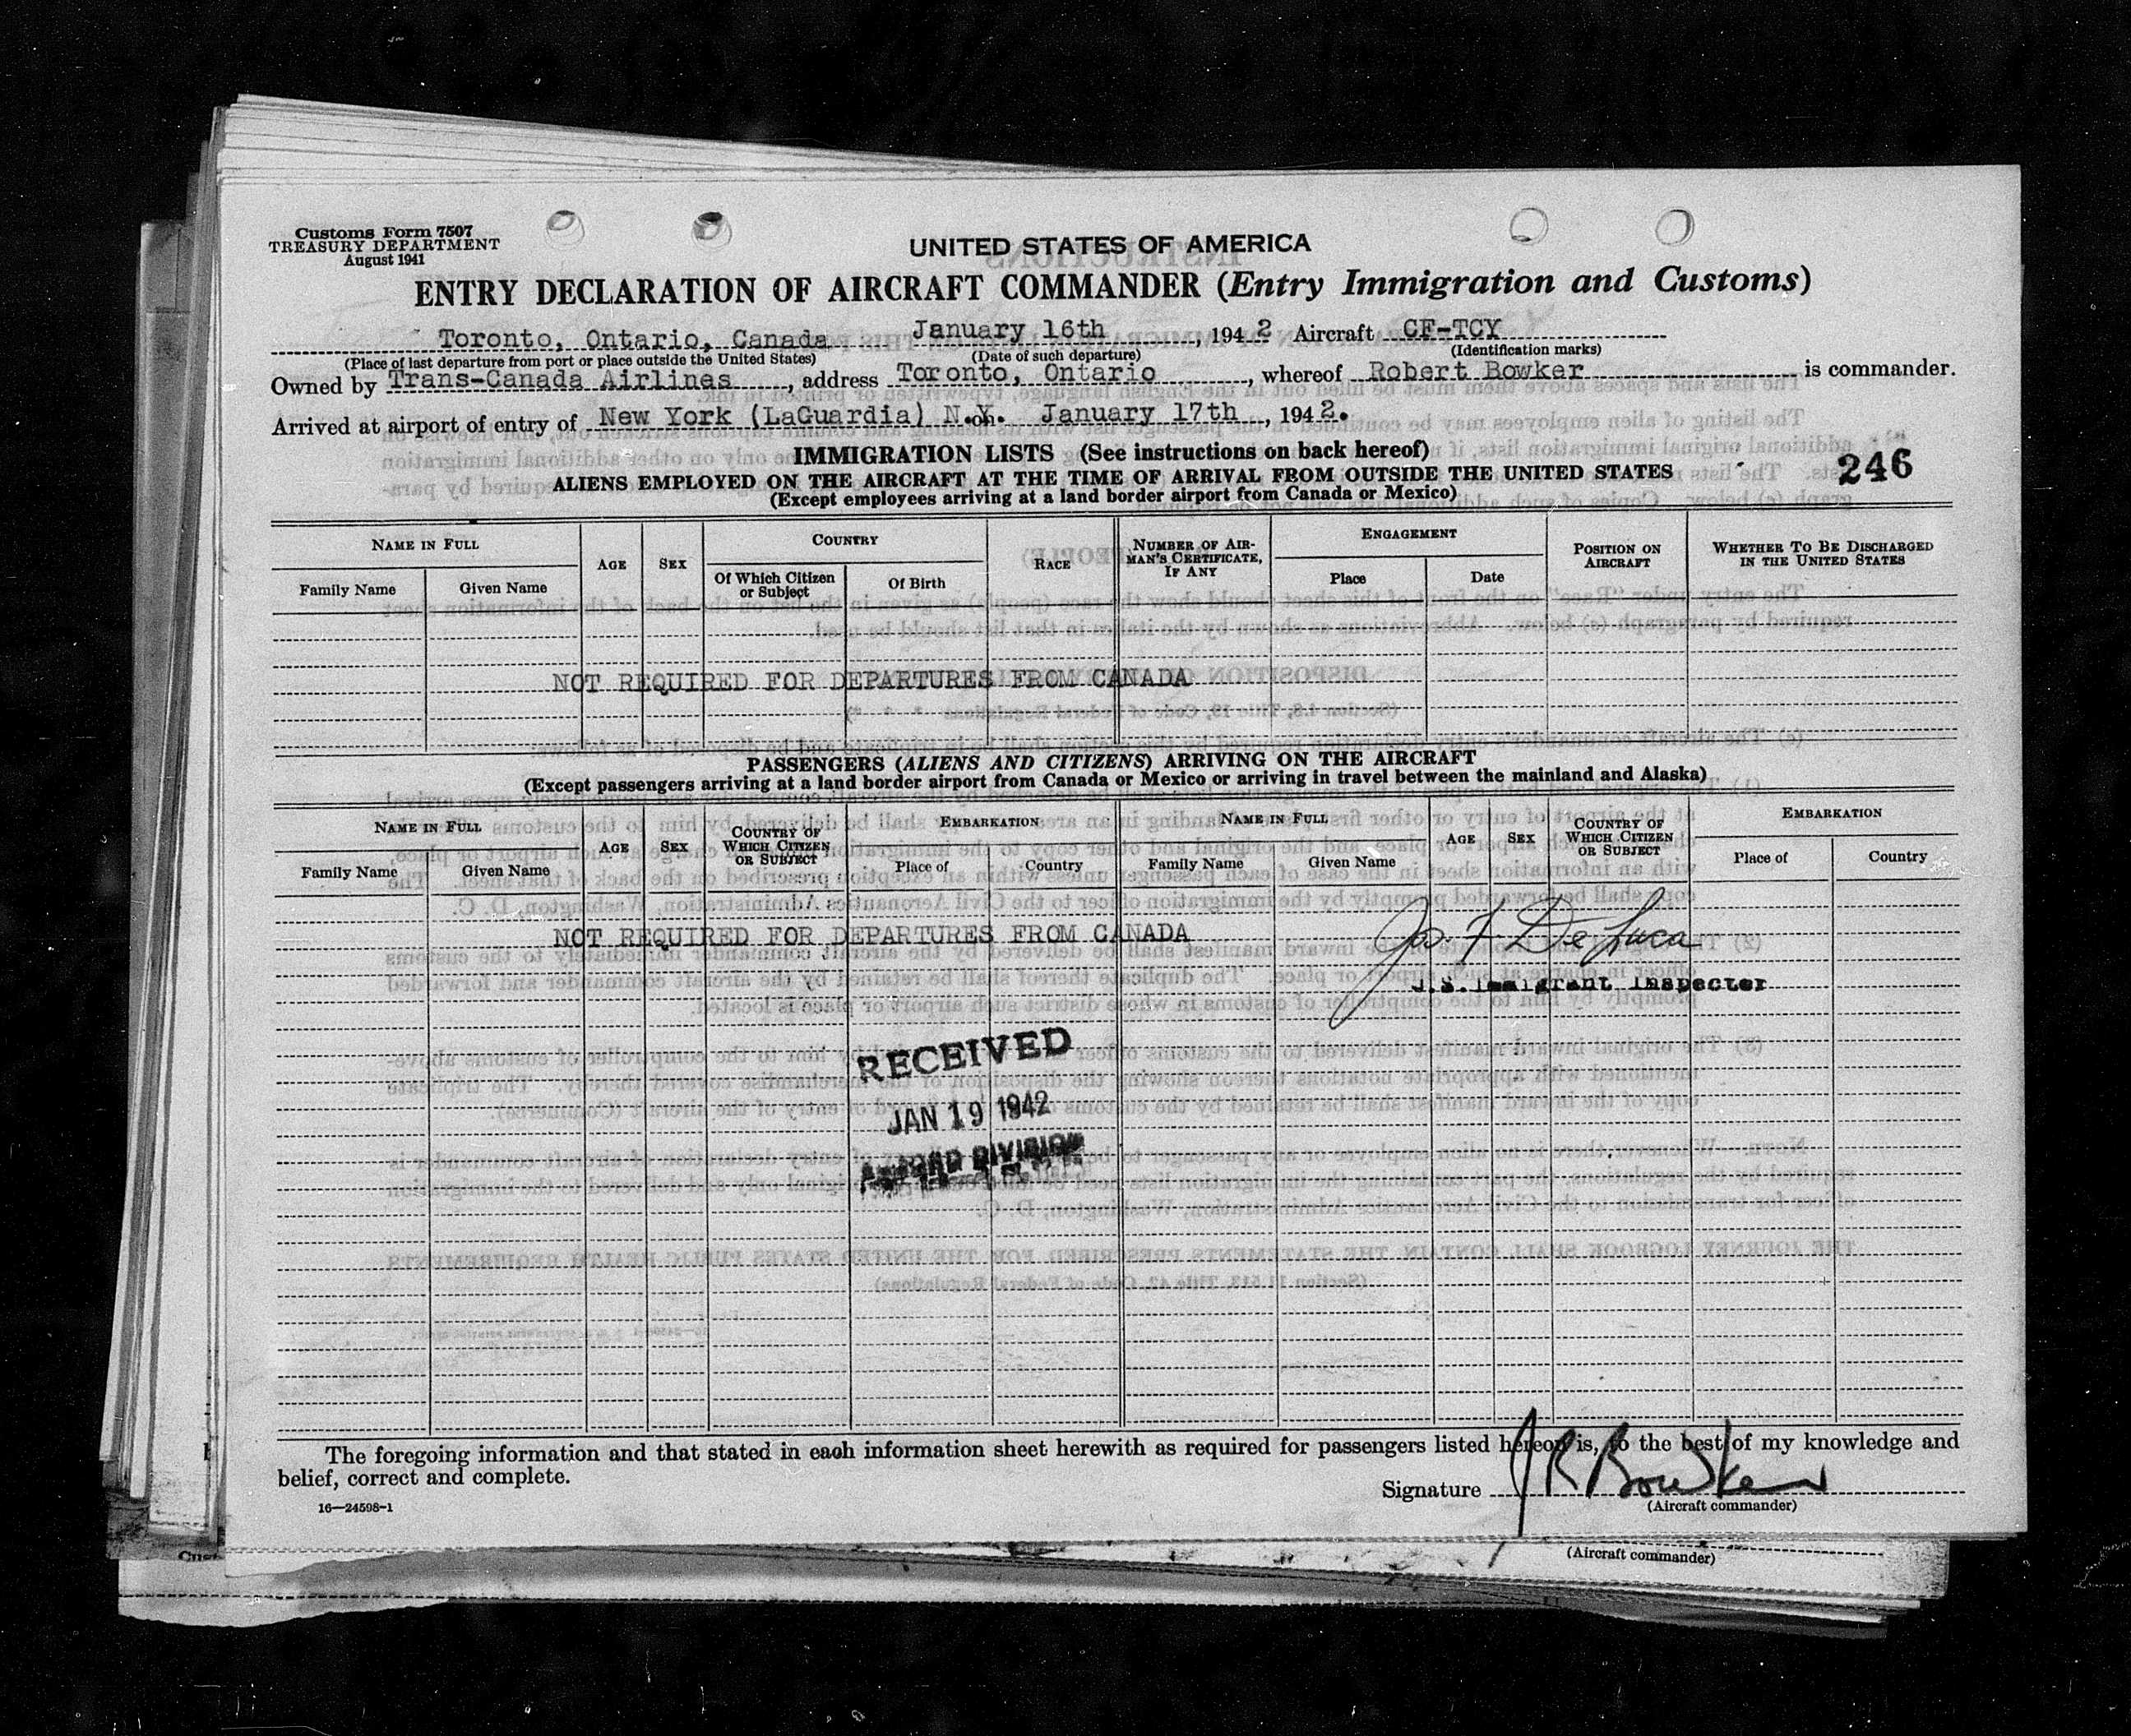 Customs Form 7507
TREASURY DEPARTMENT
August 1941
UNITED STATES OF AMERICA
ENTRY DECLARATION OF AIRCRAFT COMMANDER (Entry Immigration and Customs)
Toronto, Ontario, Canada January 16th, 1942 Aircraft CF-TCY
(Place of last departure from port or place outside the United States) (Date of such departure) (Identification marks)
Owned by Trans-Canada Airlines, address Toronto, Ontario, whereof Robert Bowker is commander.
Arrived at airport of entry of New York (LaGuardia) N.Y. on January 17th, 1942.
IMMIGRATION LISTS (See instructions on back hereof)
246
ALIENS EMPLOYED ON THE AIRCRAFT AT THE TIME OF ARRIVAL FROM OUTSIDE THE UNITED STATES
(Except employees arriving at a land border airport from Canada or Mexico)
NAME IN FULL AGE SEX COUNTRY RACE NUMBER OF AIRMAN'S CERTIFICATE, IF ANY ENGAGEMENT POSITION ON AIRCRAFT WHETHER TO BE DISCHARGED IN THE UNITED STATES
Family Name Given Name Of Which Citizen or Subject Of Birth Place Date
NOT REQUIRED FOR DEPARTURES FROM CANADA
PASSENGERS (ALIENS AND CITIZENS) ARRIVING ON THE AIRCRAFT
(Except passengers arriving at a land border airport from Canada or Mexico or arriving in travel between the mainland and Alaska)
NAME IN FULL AGE SEX COUNTRY OF WHICH CITIZEN OR SUBJECT EMBARKATION NAME IN FULL AGE SEX COUNTRY OF WHICH CITIZEN OR SUBJECT EMBARKATION
Family Name Given Name Place of Country Family Name Given Name Place of Country
NOT REQUIRED FOR DEPARTURES FROM CANADA
Jos. F. De Luca
U.S. Immigrant Inspector
RECEIVED
JAN 19 1942
DIVISION
The foregoing information and that stated in each information sheet herewith as required for passengers listed hereon is, to the best of my knowledge and
belief, correct and complete.
Signature J R Bowker
(Aircraft commander)
16—24598-1
(Aircraft commander)